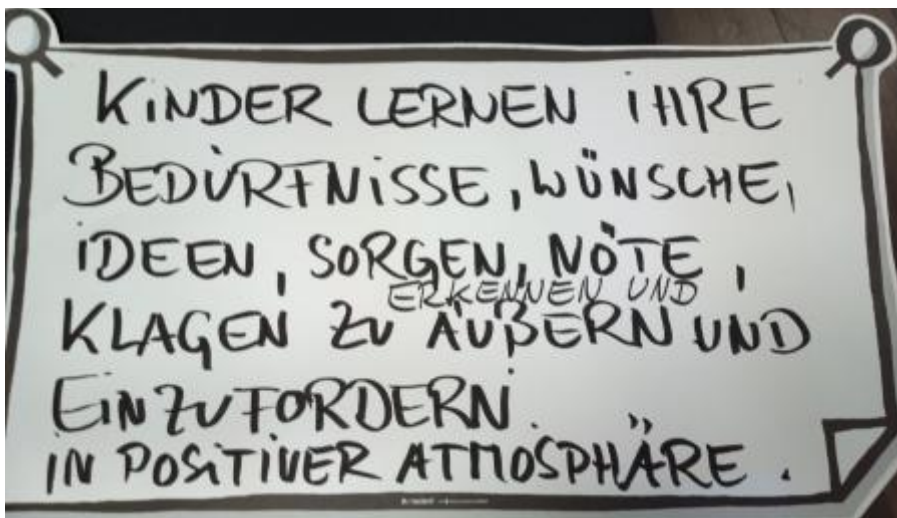 KINDER LERNEN IHRE
BEDÜRFNISSE, WÜNSCHE,
IDEEN, SORGEN, NÖTE,
ERKENNEN UND
KLAGEN ZU ÄUßERN UND
EINZUFORDERN.
IN POSITIVER ATMOSPHÄRE.